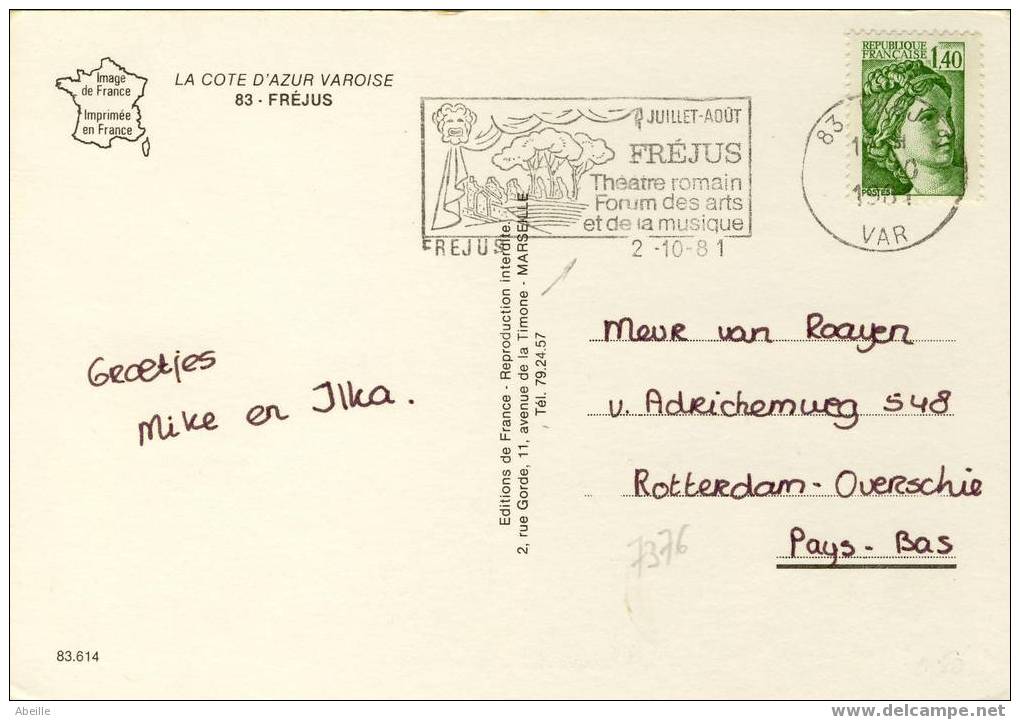 Image
de France
Imprimée
en France
LA COTE D'AZUR VAROISE
83 - FRÉJUS
JUILLET-AOÛT
FRÉJUS
Théatre romain
Forum des arts
et de la musique
FREJUS
2 -10-81
REPUBLIQUE
FRANÇAISE
1,40
POSTES
83
1981
VAR
Editions de France - Reproduction interdite.
2, rue Gorde, 11, avenue de la Timone - MARSEILLE
Tél. 79.24.57
Groetjes
Mike en Ilka.
Meur van Raayen
v. Adrichemweg 548
Rotterdam - Overschie
Pays - Bas
7376
83.614
Abeille
www.delcampe.net